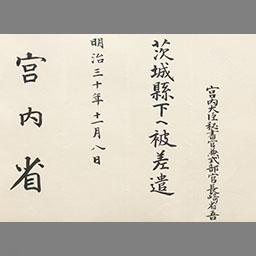 宮内大臣秘書官兼式部官長崎省吾
茨城縣下ヘ被差遣
明治三十年十一月八日
宮内省